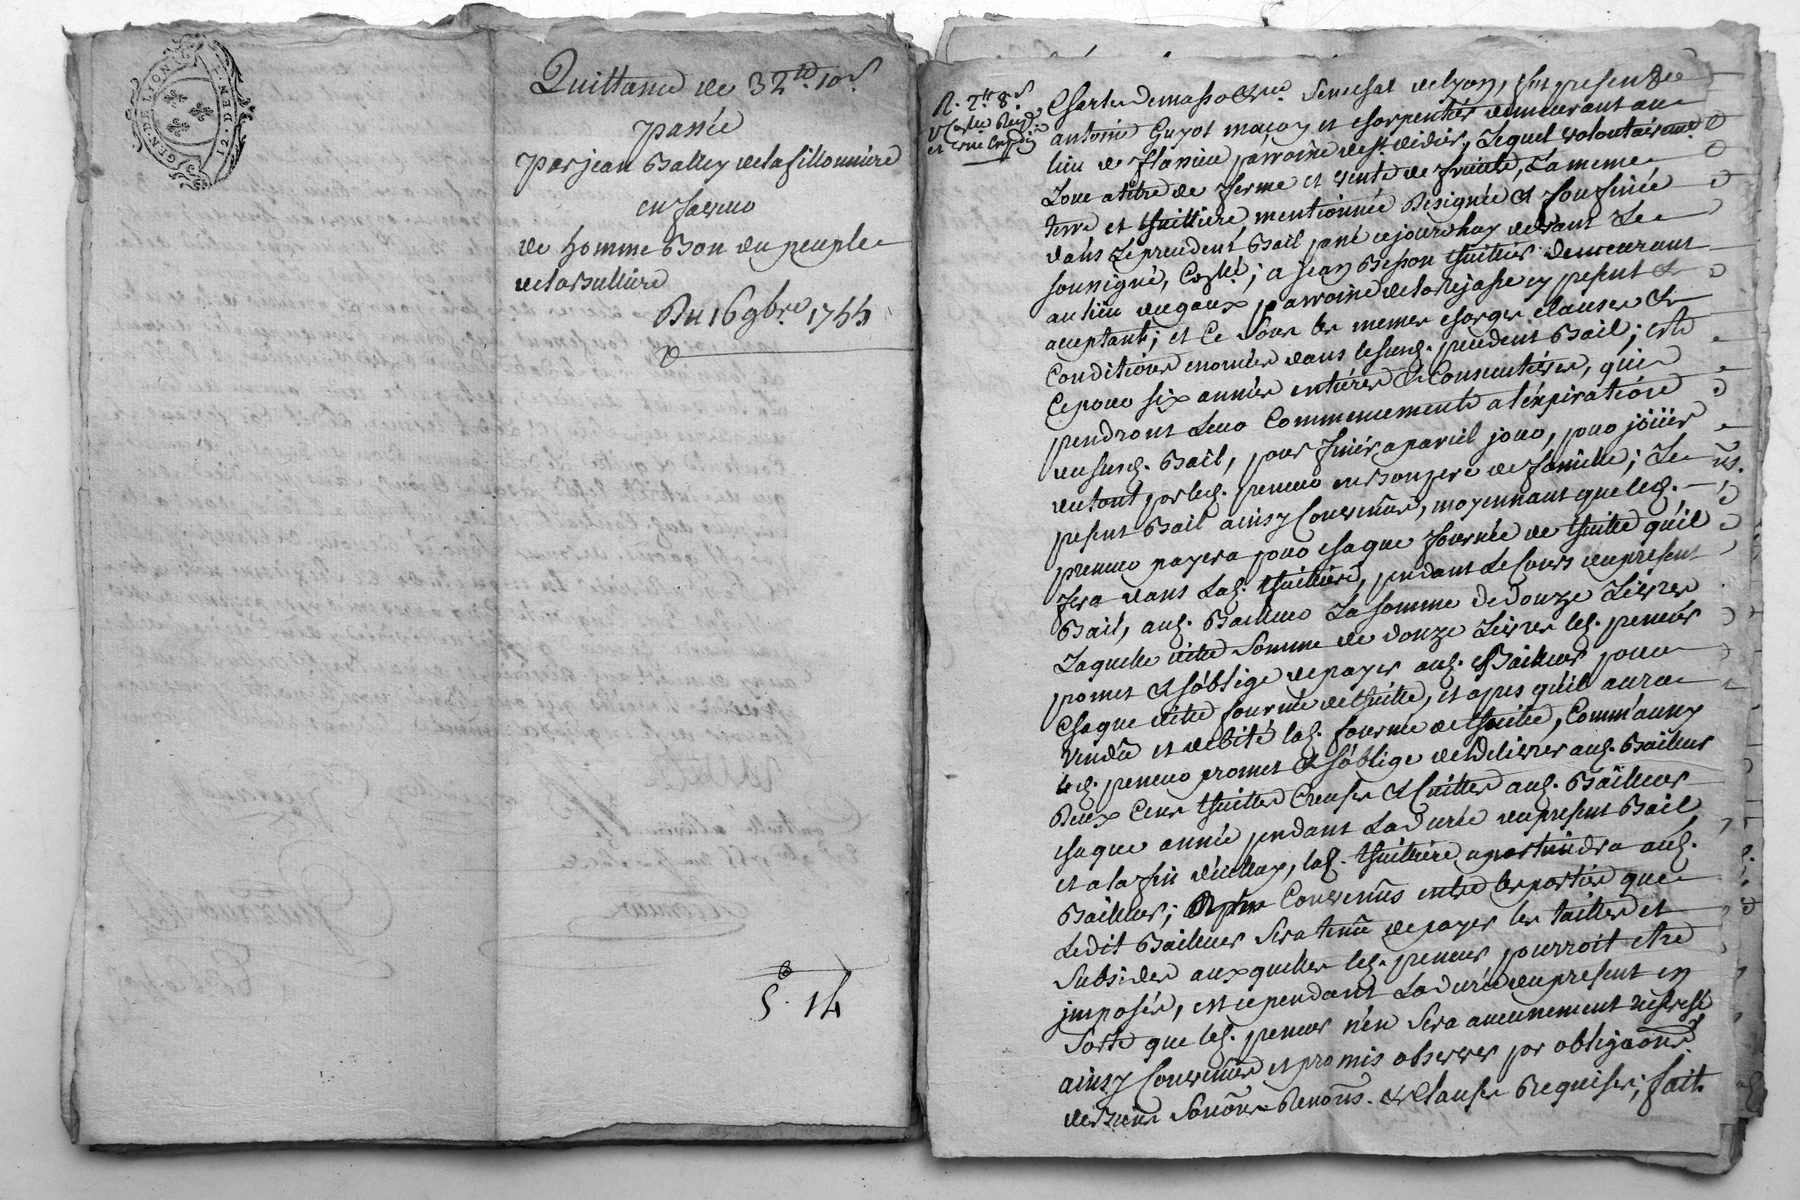 GEN. DE LION
Quittance de 32 tt 10 s
passée
par jean Balley delafillonniere
en faveur
de homme Bon du peuple
delabulliere
Du 16 9bre 1755
5 - 14
R. 2 tt 8 s
antoine Guyot maçon et charpentier demeurant au
lieu de flanieu parroisse de st. didier, Lequel volontairement
Loue a titre de ferme et vente de fruits, La meme
terre et thuilliere mentionnée Designée et confinée
dans Leprecedent Bail passé cejourdhuy devant Le
soussigné, a jean Besson thuillier demeurant
au lieu parroisse cy present et
acceptant; et Ce Sous les memes charges clauses et
Conditions enoncées dans lesusd. precedent Bail; et
Cepour six années entieres et Consecutives, qui
prendront Leur Commencement a lexpiration
dususd. Bail, pour finir apareil jour, pour joüir
dutout par led. preneur en Bon pere de famille; Le
present Bail ainsy Convenu, moyennant que led.
preneur payera pour chaque fournée de thuille quil
fera dans Lad. thuilliere, pendant Le Cours dupresent
Bail, aud. Bailleur La somme de douze Livres
Laquelle dite Somme de douze Livres led. preneur
promet et s'oblige depayer aud. Bailleur pour
Chaque dite fournée de thuille, et apres quil aura
Vendu et debité lad. fournée de thuille, Comm'aussy
led. preneur promet et s'oblige de delivrer aud. Bailleur
Deux Cens thuilles Creuses et Cuittes aud. Bailleur
chaque année pendant La Durée dupresent Bail
et a la fin d'icelluy, lad. thuilliere apartiendra aud.
Bailleur; Convenus entre les parties que
Ledit Bailleur Sera tenu depayer les tailles et
Subsides auxquelles led. preneur pourroit etre
imposés, et cependant La durée dupresent en
Sorte que led. preneur n'en Sera aucunement
ainsy Convenu et promis observer par obligations
de Biens Renons. et Clauses Requises; fait